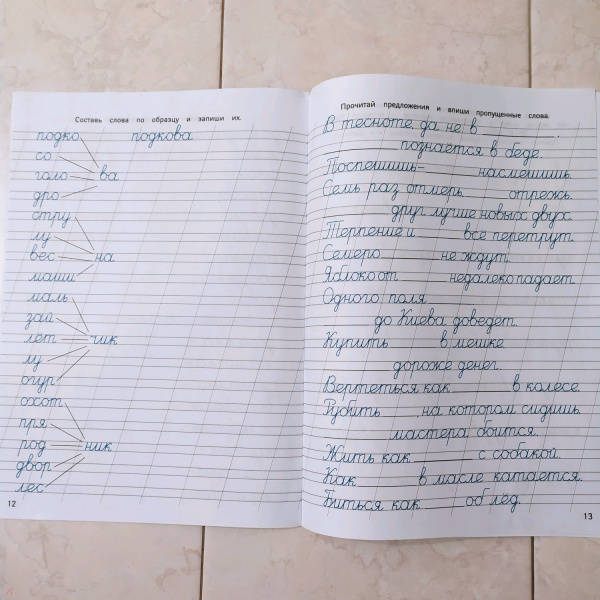 Составь слова по образцу и запиши их.
подко подкова
со
голо ва
дро
стру
лу
вес на
маши
маль
зай
лет чик
лу
огур
охот
пря
род ник
двор
лес
12
Прочитай предложения и впиши пропущенные слова.
В тесноте, да не в ________.
________ познается в беде.
Поспешишь – ________ насмешишь.
Семь раз отмерь, ________ отрежь.
________ друг лучше новых двух.
Терпение и ________ все перетрут.
Семеро ________ не ждут.
Яблоко от ________ недалеко падает.
Одного поля ________
________ до Киева доведет.
Купить ________ в мешке.
________ дороже денег.
Вертеться как ________ в колесе.
Рубить ________, на котором сидишь.
________ мастера боится.
Жить как ________ с собакой.
Как ________ в масле катается.
Биться как ________ об лед.
13